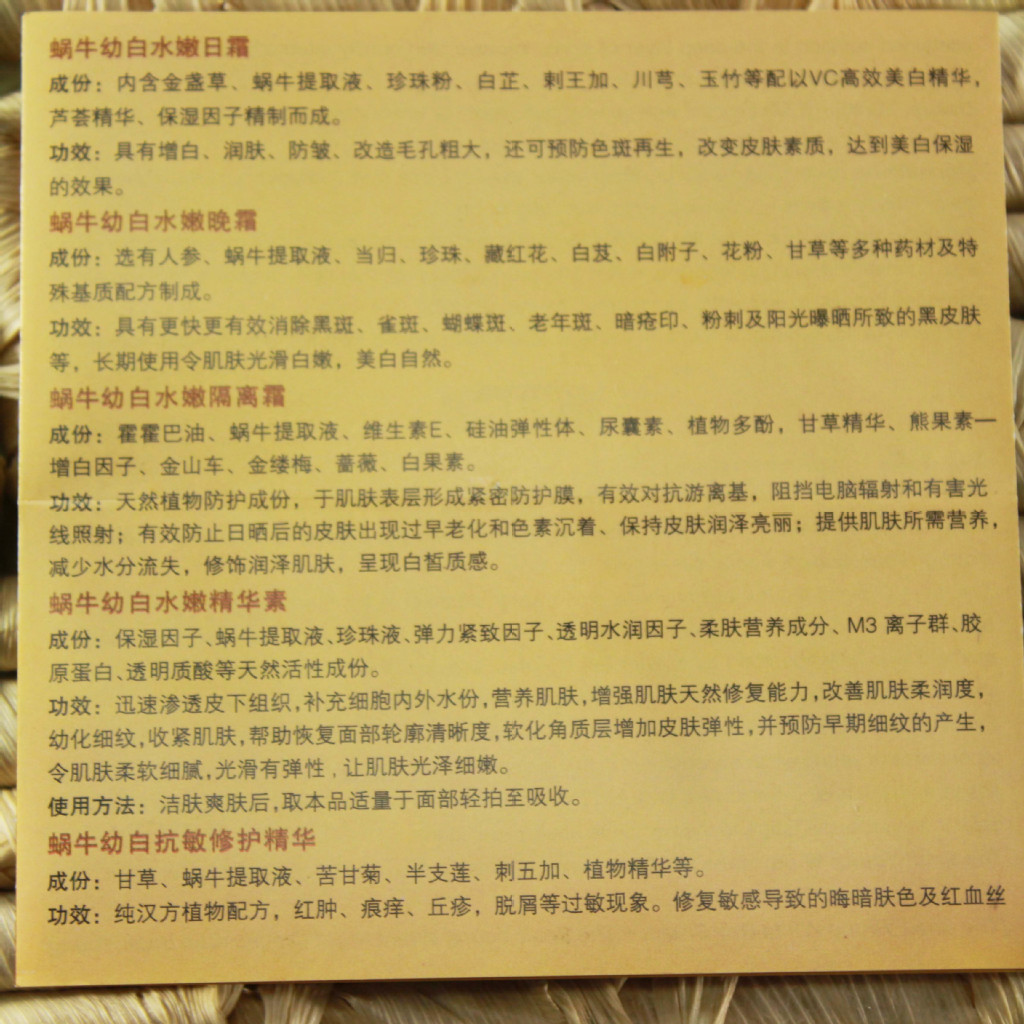 蜗牛幼白水嫩日霜
成份：内含金盏草、蜗牛提取液、珍珠粉、白芷、剌王加、川芎、玉竹等配以VC高效美白精华，
芦荟精华、保湿因子精制而成。
功效：具有增白、润肤、防皱、改造毛孔粗大，还可预防色斑再生，改变皮肤素质，达到美白保湿
的效果。
蜗牛幼白水嫩晚霜
成份：选有人参、蜗牛提取液、当归、珍珠、藏红花、白芨、白附子、花粉、甘草等多种药材及特
殊基质配方制成。
功效：具有更快更有效消除黑斑、雀斑、蝴蝶斑、老年斑、暗疮印、粉刺及阳光曝晒所致的黑皮肤
等，长期使用令肌肤光滑白嫩，美白自然。
蜗牛幼白水嫩隔离霜
成份：霍霍巴油、蜗牛提取液、维生素E、硅油弹性体、尿囊素、植物多酚，甘草精华、熊果素一
增白因子、金山车、金缕梅、蔷薇、白果素。
功效：天然植物防护成份，于肌肤表层形成紧密防护膜，有效对抗游离基，阻挡电脑辐射和有害光
线照射；有效防止日晒后的皮肤出现过早老化和色素沉着、保持皮肤润泽亮丽；提供肌肤所需营养，
减少水分流失，修饰润泽肌肤，呈现白皙质感。
蜗牛幼白水嫩精华素
成份：保湿因子、蜗牛提取液、珍珠液、弹力紧致因子、透明水润因子、柔肤营养成分、M3 离子群、胶
原蛋白、透明质酸等天然活性成份。
功效：迅速渗透皮下组织，补充细胞内外水份，营养肌肤，增强肌肤天然修复能力，改善肌肤柔润度，
幼化细纹，收紧肌肤，帮助恢复面部轮廓清晰度，软化角质层增加皮肤弹性，并预防早期细纹的产生，
令肌肤柔软细腻，光滑有弹性，让肌肤光泽细嫩。
使用方法：洁肤爽肤后，取本品适量于面部轻拍至吸收。
蜗牛幼白抗敏修护精华
成份：甘草、蜗牛提取液、苦甘菊、半支莲、刺五加、植物精华等。
功效：纯汉方植物配方，红肿、痕痒、丘疹，脱屑等过敏现象。修复敏感导致的晦暗肤色及红血丝